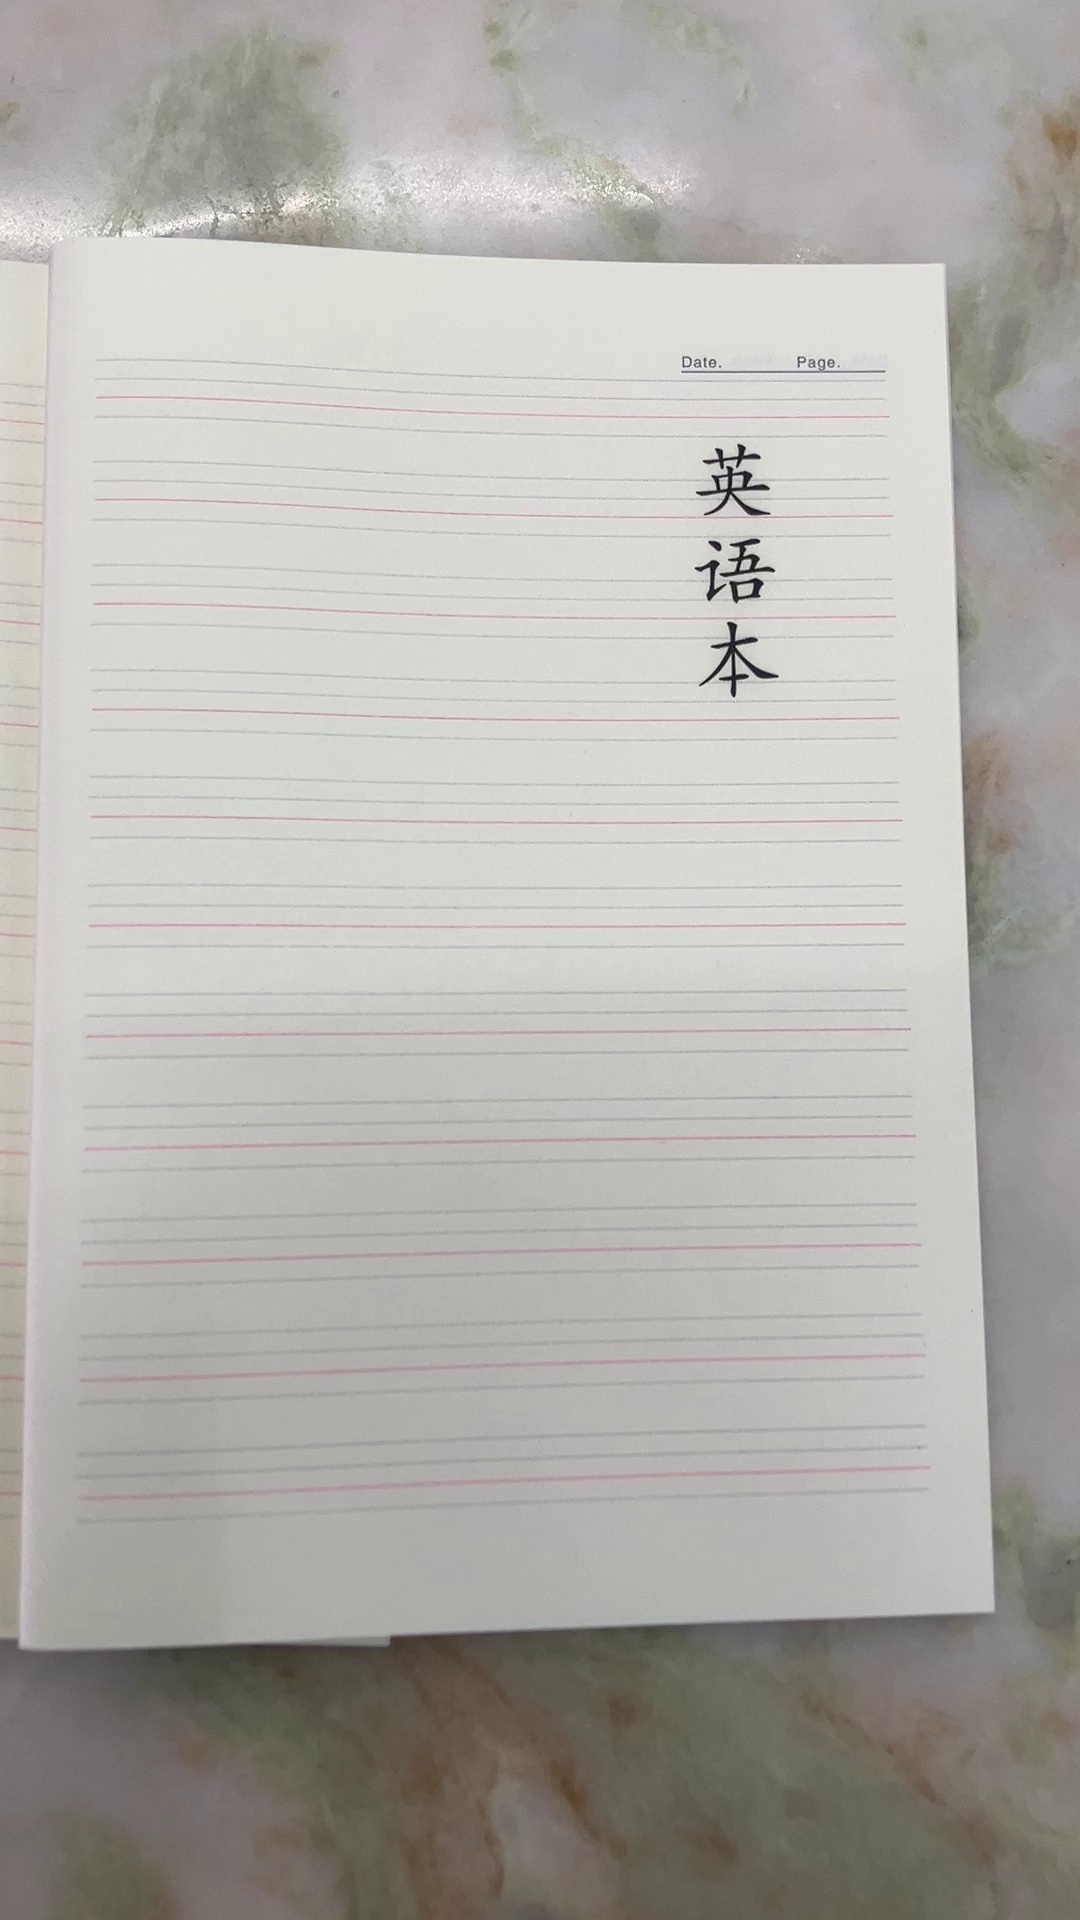 Date. Page.
英语本